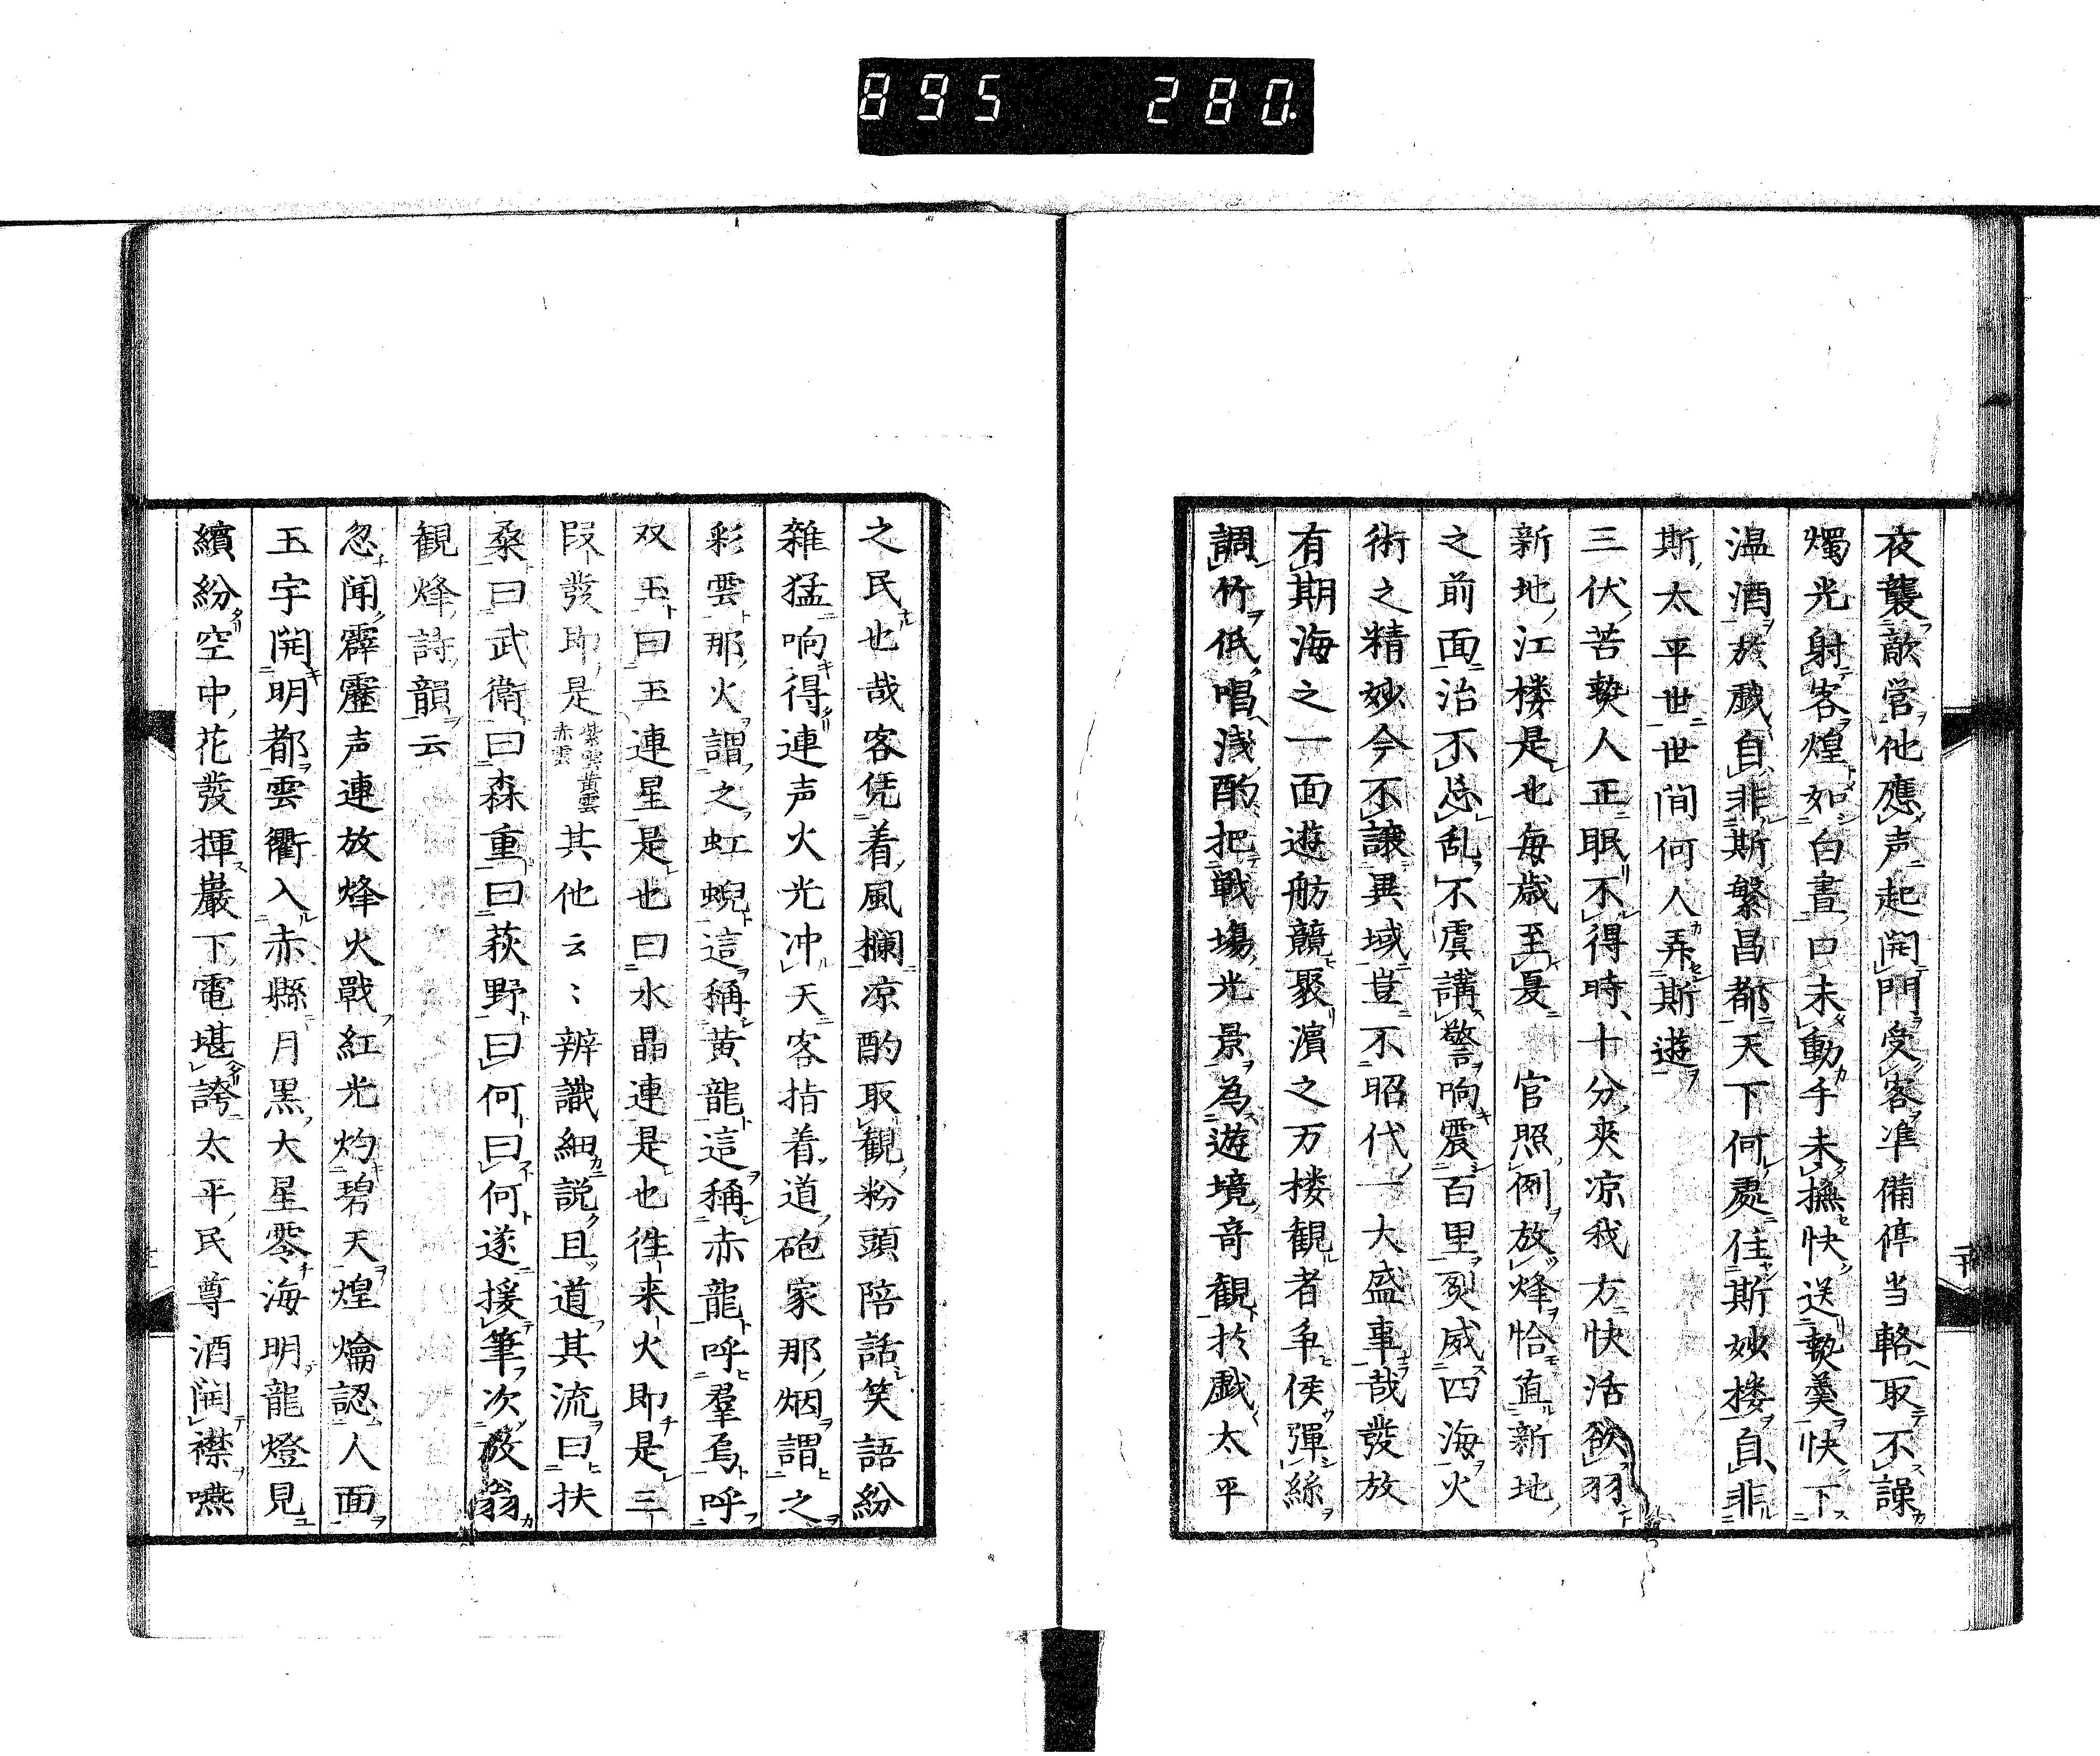 895 280
夜襲敵営他應声起開門受客準備停当輅取不譟
燭光射客煌如白晝口未動手未撫快送𤍠羹快下
温酒於戯自非斯繁昌都天下何處住斯妙楼自非
斯太平世世間何人弄斯遊
三伏苦𤍠人正眠不得時十分爽凉我方快活欲羽
新地江楼是也毎歳至夏 官照例放烽恰直新地
之前面治不忘乱不虞講警响震百里烈威四海火
術之精妙今不讓異域豈不昭代一大盛事哉發放
有期海之一面遊舫競聚濵之万楼観者争侯彈絲
調竹低唱浅酌把戦塲光景為遊境竒観於戯太平
之民也哉客凭着風欄凉酌取観粉頭陪話笑語紛
雜猛响得連声火光冲天客指着道砲家那烟謂之
彩雲那火謂之虹蜺這稱黄龍這稱赤龍呼羣烏呼
双玉曰玉連星是也曰水晶連是也徃来火即是三
段發即是紫雲黄雲赤雲其他云〻辨識細説且道其流曰扶
桑曰武衛曰森重曰荻野曰何曰何遂援筆次放翁
観烽詩韻云
忽聞霹靂声連放烽火戰紅光灼碧天煌爚認人面
玉宇開明都雲衢入赤縣月黒大星零海明龍燈見
繽紛空中花發揮巖下電堪誇太平民尊酒開襟嚥